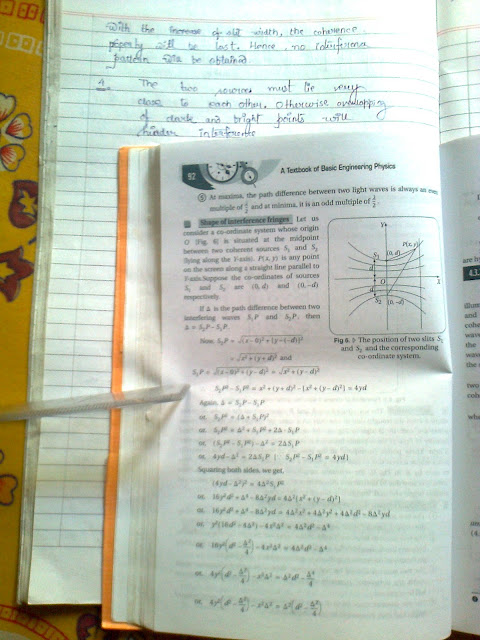 With the increase of slit width, the coherence
property will be lost. Hence, no interference
pattern will be obtained
4. The two sources must lie very
close to each other. Otherwise overlapping
of dark and bright points will
hinder interference
92
A Textbook of Basic Engineering Physics
⑤ At maxima, the path difference between two light waves is always an even
multiple of λ/2 and at minima, it is an odd multiple of λ/2.
Shape of interference fringes Let us
consider a co-ordinate system whose origin
O (Fig. 6) is situated at the midpoint
between two coherent sources S₁ and S₂
(lying along the Y-axis). P(x, y) is any point
on the screen along a straight line parallel to
Y-axis. Suppose the co-ordinates of sources
S₁ and S₂ are (0, d) and (0, –d)
respectively.
If Δ is the path difference between two
interfering waves S₁P and S₂P, then
Δ = S₂P – S₁P.
Now, S₂P = √(x – 0)² + {y – (–d)}²
= √x² + (y + d)² and
S₁P = √(x – 0)² + (y – d)² = √x² + (y – d)²
∴ S₂P² – S₁P² = x² + (y + d)² – {x² + (y – d)²} = 4yd
Again, Δ = S₂P – S₁P
or, S₂P² = (Δ + S₁P)²
or, S₂P² = Δ² + S₁P² + 2Δ · S₁P
or, (S₂P² – S₁P²) – Δ² = 2ΔS₁P
or, 4yd – Δ² = 2ΔS₁P [ S₂P² – S₁P² = 4yd]
Squaring both sides, we get,
(4yd – Δ²)² = 4Δ²S₁P²
or, 16y²d² + Δ⁴ – 8Δ²yd = 4Δ²{x² + (y – d)²}
or, 16y²d² + Δ⁴ – 8Δ²yd = 4Δ²x² + 4Δ²y² + 4Δ²d² – 8Δ²yd
or, y²(16d² – 4Δ²) – 4x²Δ² = 4Δ²d² – Δ⁴
or, 16y²(d² – Δ²/4) – 4x²Δ² = 4Δ²d² – Δ⁴
or, 4y²(d² – Δ²/4) – x²Δ² = Δ²d² – Δ⁴/4
or, 4y²(d² – Δ²/4) – x²Δ² = Δ²(d² – Δ²/4)
Y
P(x, y)
S₁ (0, d)
d
O
X
d
S₂ (0, –d)
Fig 6. The position of two slits S₁
and S₂ and the corresponding
co-ordinate system.
4.3.